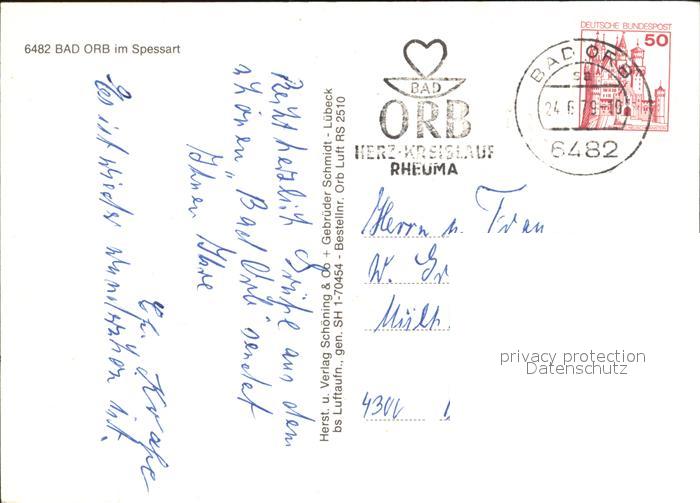 6482 BAD ORB im Spessart
DEUTSCHE BUNDESPOST
50
BAD ORB
sa
24.6.79
6482
BAD
ORB
HERZ-KREISLAUF
RHEUMA
Recht herzlich Grüße aus dem
schönen „Bad Orb" sendet
Ihnen Ihre
Es ist wieder wunderschön hier.
Herst. u. Verlag Schöning & Co + Gebrüder Schmidt - Lübeck
bs Luftaufn., gen. SH 1-70454 - Bestellnr. Orb Luft RS 2510
Herrn u. Frau
W. Gr
Mülh.
4300 1
privacy protection
Datenschutz